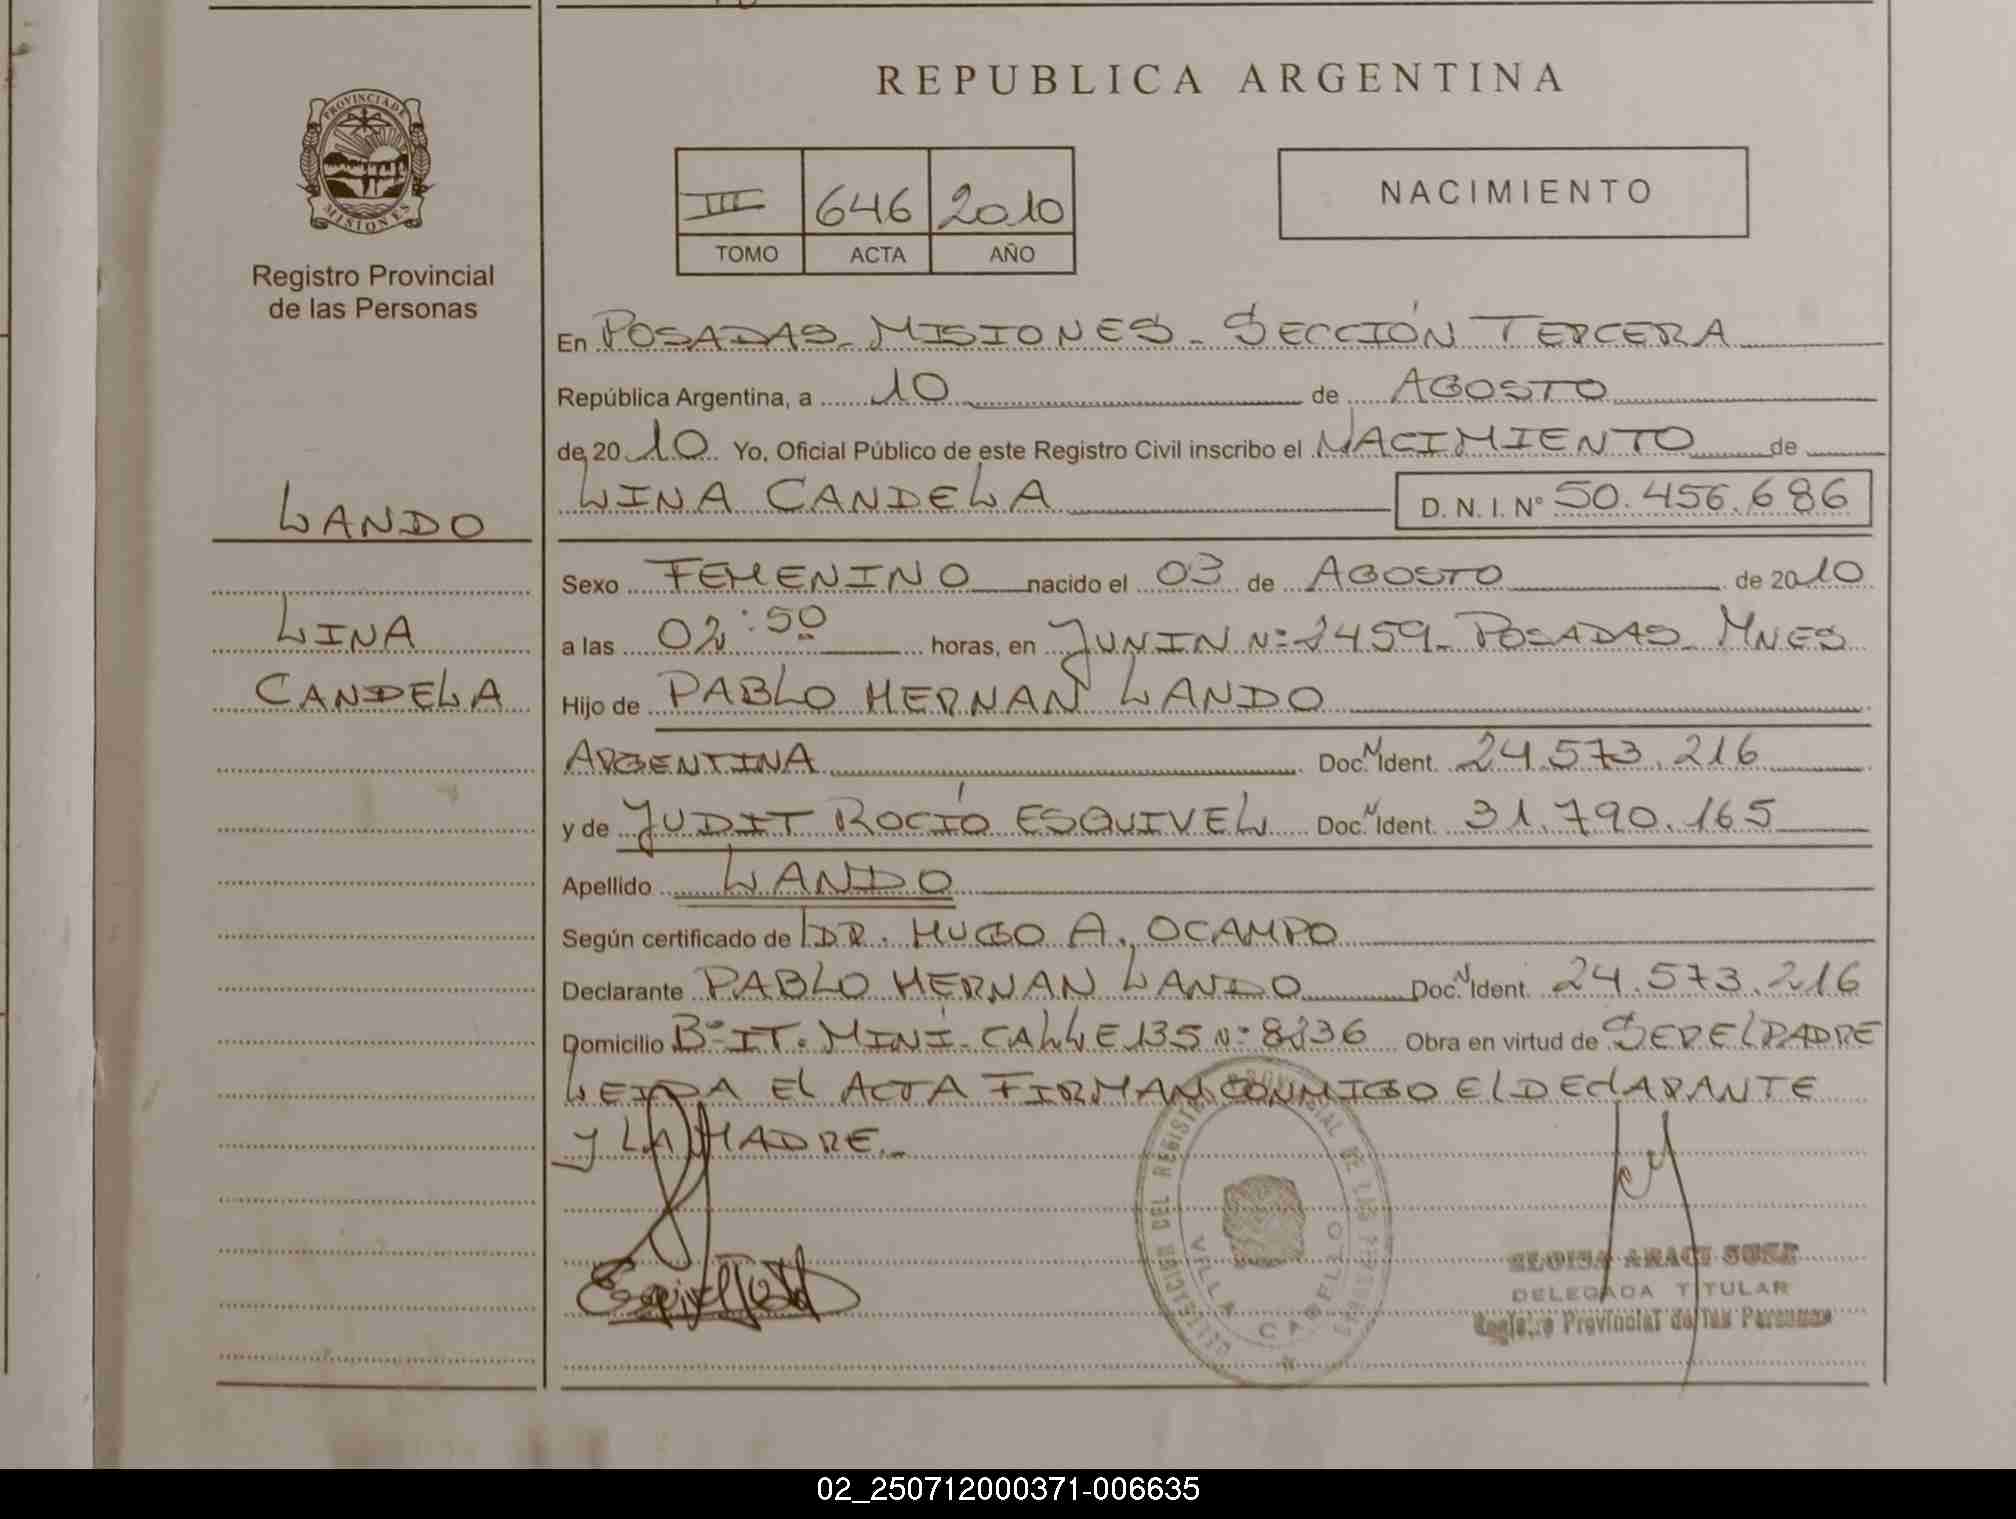 REPUBLICA ARGENTINA
PROVINCIA DE
MISIONES
Registro Provincial
de las Personas
III 646 2010
TOMO ACTA AÑO
NACIMIENTO
LANDO
LINA
CANDELA
En POSADAS - MISIONES - SECCIÓN TERCERA
República Argentina, a 10 de AGOSTO
de 2010 Yo, Oficial Público de este Registro Civil inscribo el NACIMIENTO de
LINA CANDELA D. N. I. Nº 50.456.686
Sexo FEMENINO nacido el 03 de AGOSTO de 2010
a las 02:50 horas, en JUNIN Nº 2459 - POSADAS - MNES
Hijo de PABLO HERNAN LANDO
ARGENTINA Doc. N Ident. 24.573.216
y de JUDIT ROCÍO ESQUIVEL Doc. N Ident. 31.790.165
Apellido LANDO
Según certificado de DR. HUGO A. OCAMPO
Declarante PABLO HERNAN LANDO Doc. N Ident. 24.573.216
Domicilio Bº IT. MINÍ - CALLE 135 Nº 8136 Obra en virtud de SER EL PADRE
LEIDA El ACTA FIRMAN CONMIGO El DEClARANTE
y LA MADRE.-
DELEGACION DEL REGISTRO PROVINCIAL DE LAS PERSONAS
VILLA CABELLO
DELEGADA TITULAR
Registro Provincial de las Personas
02_250712000371-006635